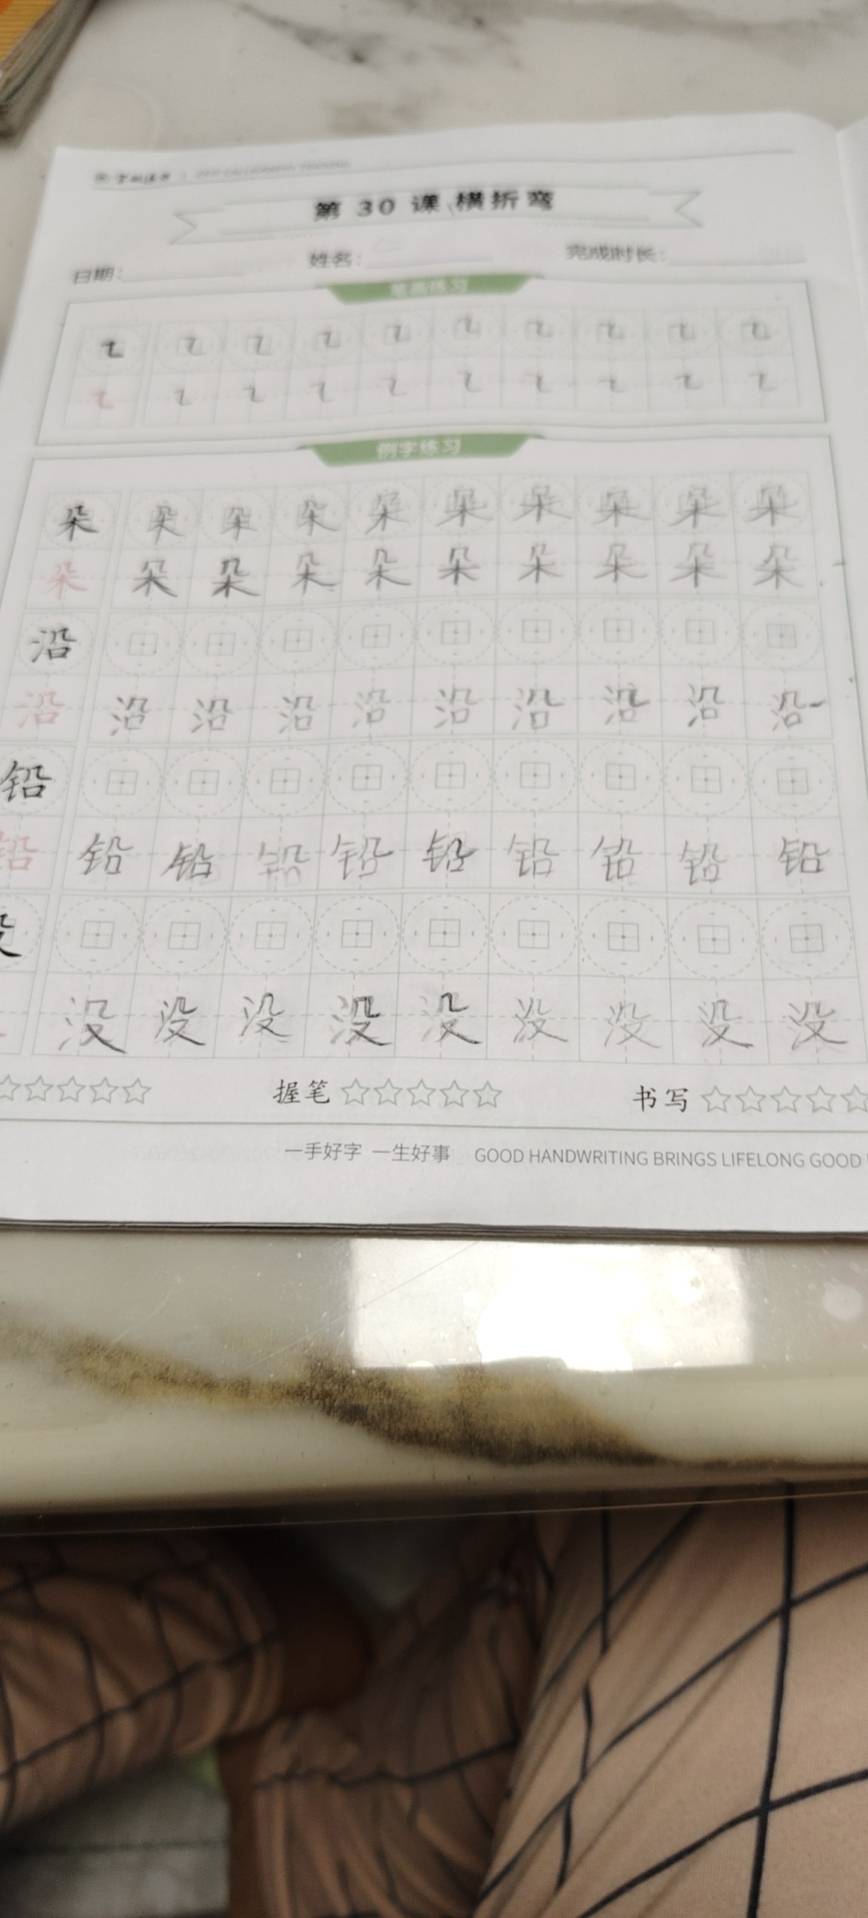 第 30 课 横折弯
日期: 姓名: 完成时长:
笔画练习
例字练习
朵 朵 朵 朵 朵 朵 朵 朵 朵 朵
朵 朵 朵 朵 朵 朵 朵 朵 朵 朵
沿
沿 沿 沿 沿 沿 沿 沿 沿 沿 沿
铅
铅 铅 铅 铅 铅 铅 铅 铅 铅 铅
没 没 没 没 没 没 没 没 没
握笔 ☆☆☆☆☆ 书写 ☆☆☆☆☆
一手好字 一生好事 GOOD HANDWRITING BRINGS LIFELONG GOOD